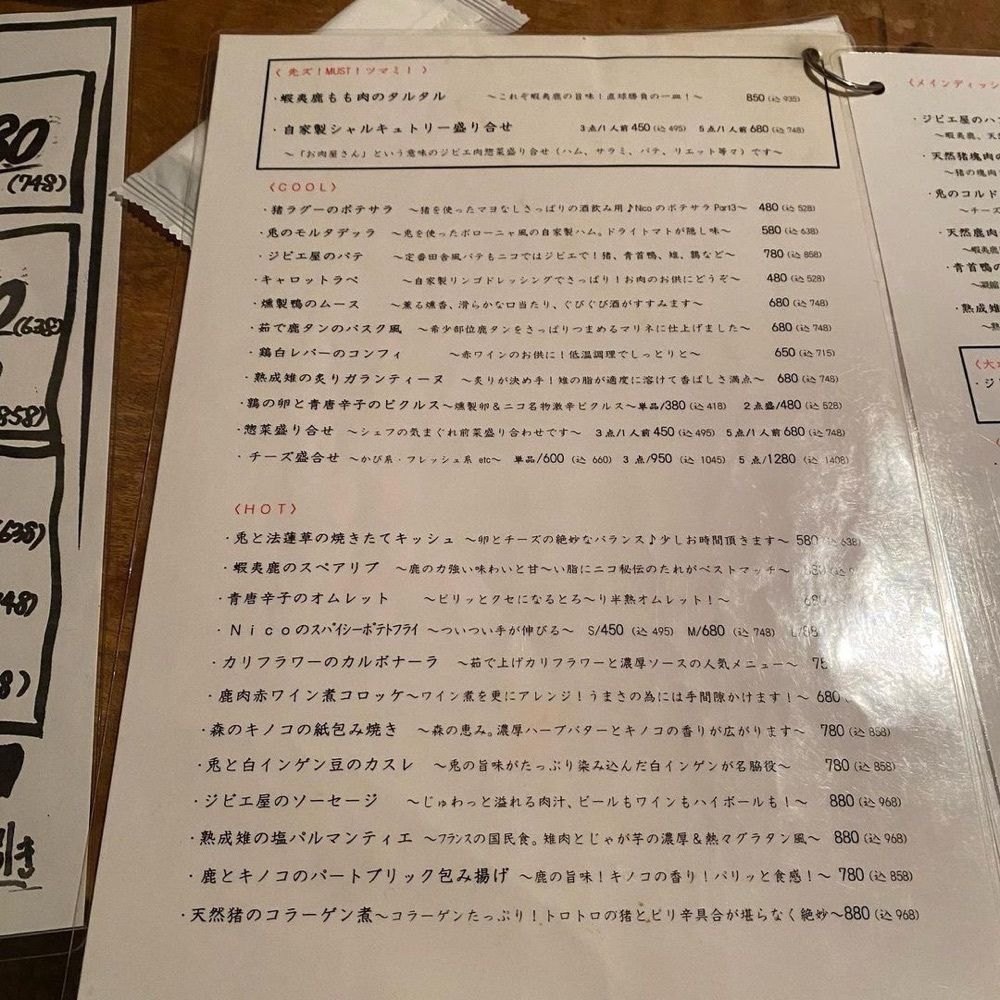 80
(748)
(638)
858)
(638)
48)
8)
引き
〈先ズ!MUST!ツマミ!〉
・蝦夷鹿もも肉のタルタル ～これぞ蝦夷鹿の旨味!直球勝負の一皿!～ 850(込935)
・自家製シャルキュトリー盛り合せ 3点/1人前450(込495) 5点/1人前680(込748)
～「お肉屋さん」という意味のジビエ肉惣菜盛り合せ(ハム、サラミ、パテ、リエット等々)です～
〈COOL〉
・猪ラグーのポテサラ ～猪を使ったマヨなしさっぱりの酒飲み用♪NicoのポテサラPart3～ 480(込528)
・兎のモルタデッラ ～兎を使ったボローニャ風の自家製ハム。ドライトマトが隠し味～ 580(込638)
・ジビエ屋のパテ ～定番田舎風パテもニコではジビエで!猪、青首鴨、雉、鶏など～ 780(込858)
・キャロットラペ ～自家製リンゴドレッシングでさっぱり!お肉のお供にどうぞ～ 480(込528)
・燻製鴨のムース ～薫る燻香、滑らかな口当たり、ぐびぐび酒がすすみます～ 680(込748)
・茹で鹿タンのバスク風 ～希少部位鹿タンをさっぱりつまめるマリネに仕上げました～ 680(込748)
・鶏白レバーのコンフィ ～赤ワインのお供に!低温調理でしっとりと～ 650(込715)
・熟成雉の炙りガランティーヌ ～炙りが決め手!雉の脂が適度に溶けて香ばしさ満点～ 680(込748)
・鶉の卵と青唐辛子のピクルス～燻製卵&ニコ名物激辛ピクルス～単品/380(込418) 2点盛/480(込528)
・惣菜盛り合せ ～シェフの気まぐれ前菜盛り合わせです～ 3点/1人前450(込495) 5点/1人前680(込748)
・チーズ盛合せ ～かび系・フレッシュ系etc～ 単品/600(込660) 3点/950(込1045) 5点/1280(込1408)
〈HOT〉
・兎と法蓮草の焼きたてキッシュ ～卵とチーズの絶妙なバランス♪少しお時間頂きます～ 580(込638)
・蝦夷鹿のスペアリブ ～鹿の力強い味わいと甘～い脂にニコ秘伝のたれがベストマッチ～
・青唐辛子のオムレット ～ピリッとクセになるとろ～り半熟オムレット!～ 680
・Nicoのスパイシーポテトフライ ～ついつい手が伸びる～ S/450(込495) M/680(込748) L/88
・カリフラワーのカルボナーラ ～茹で上げカリフラワーと濃厚ソースの人気メニュー～
・鹿肉赤ワイン煮コロッケ～ワイン煮を更にアレンジ!うまさの為には手間隙かけます!～ 680
・森のキノコの紙包み焼き ～森の恵み。濃厚ハーブバターとキノコの香りが広がります～ 780(込858)
・兎と白インゲン豆のカスレ ～兎の旨味がたっぷり染み込んだ白インゲンが名脇役～ 780(込858)
・ジビエ屋のソーセージ ～じゅわっと溢れる肉汁、ビールもワインもハイボールも!～ 880(込968)
・熟成雉の塩パルマンティエ ～フランスの国民食。雉肉とじゃが芋の濃厚&熱々グラタン風～ 880(込968)
・鹿とキノコのパートブリック包み揚げ ～鹿の旨味!キノコの香り!パリッと食感!～ 780(込858)
・天然猪のコラーゲン煮～コラーゲンたっぷり!トロトロの猪とピリ辛具合が堪らなく絶妙～880(込968)
〈メインディッシ
・ジビエ屋のハン
～蝦夷鹿、天然
・天然猪塊肉の
～猪の塊肉
・兎のコルド
～チーズ
・天然鹿肉
～蝦夷
・青首鴨の
～凝縮
・熟成雉
～熟
〈大
・ジ